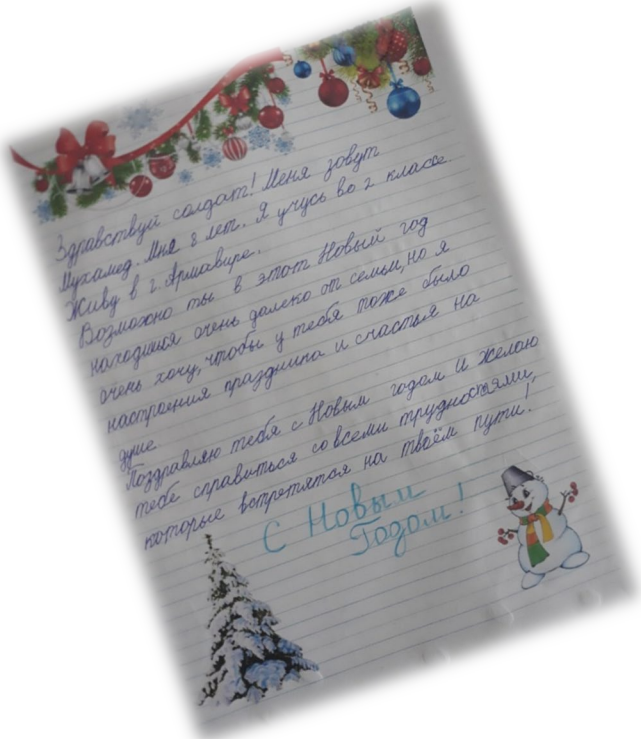 Здравствуй солдат! Меня зовут
Мухамед. Мне 8 лет. Я учусь во 2 классе.
Живу в г. Армавире.
Возможно ты в этот Новый год
находишься очень далеко от семьи, но я
очень хочу, чтобы у тебя тоже было
настроения праздника и счастья на
душе.
Поздравляю тебя с Новым годом и желаю
тебе справиться со всеми трудностями,
которые встретятся на твоём пути!
С Новым
Годом!